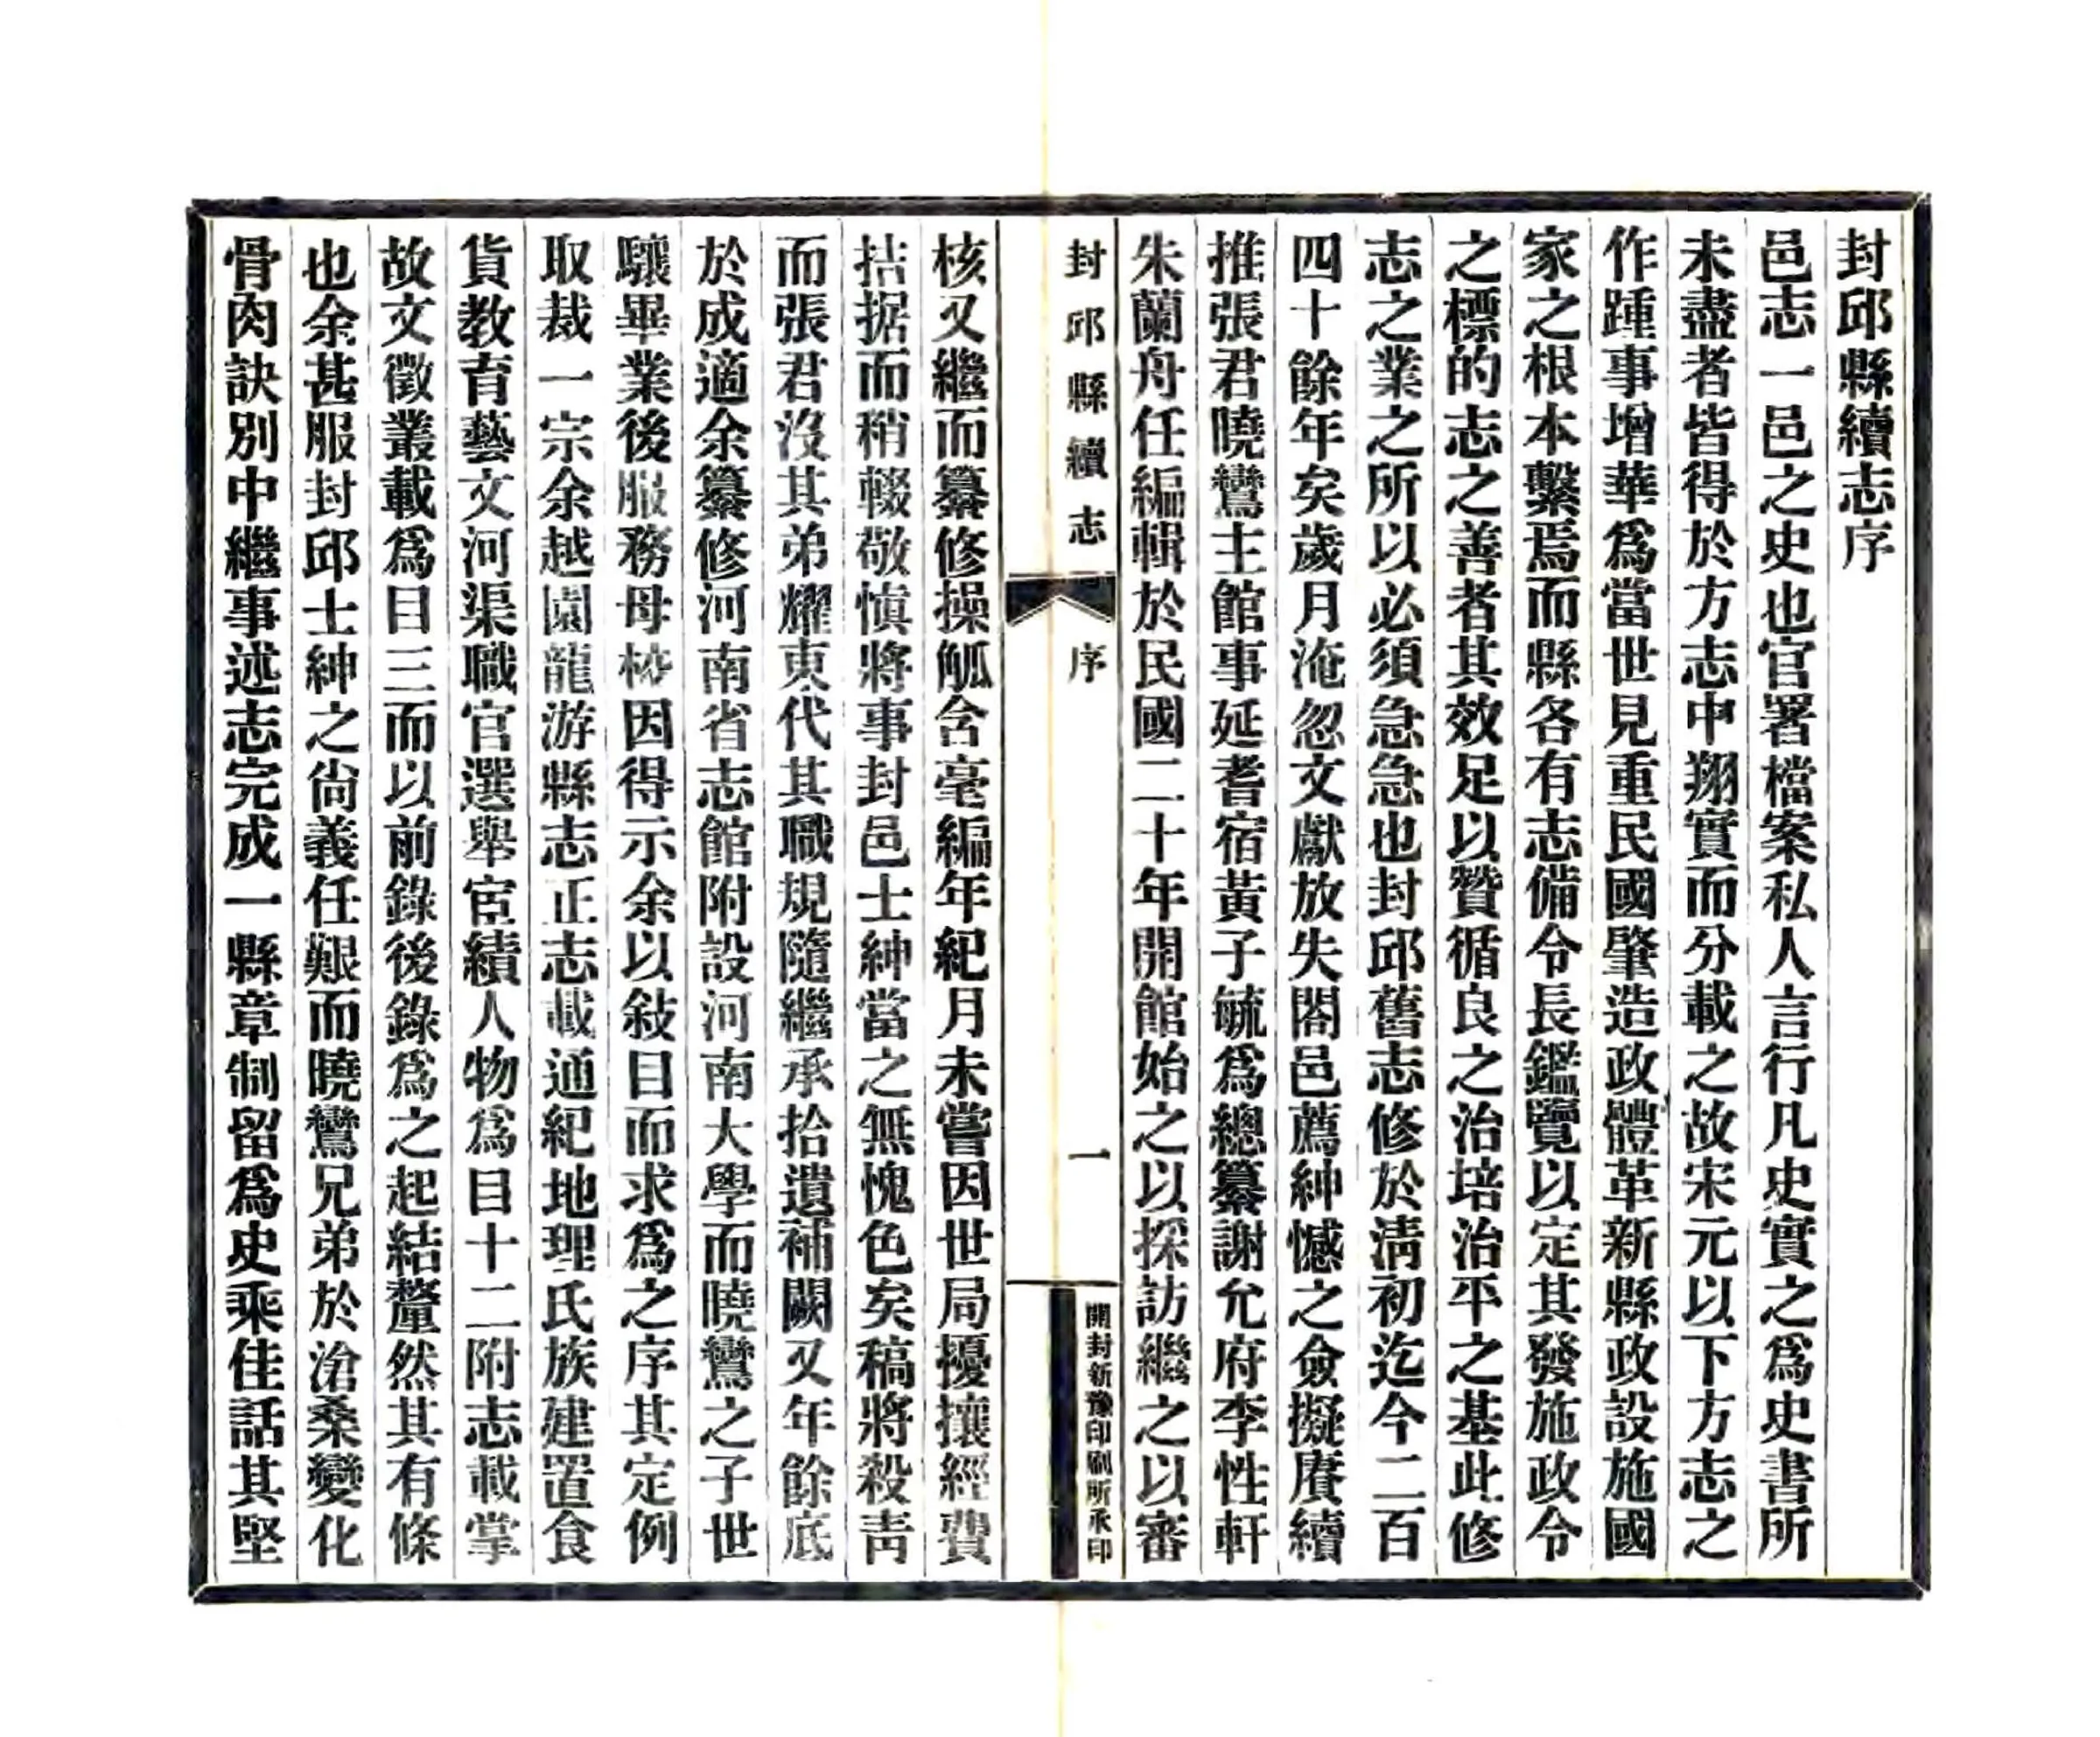 封邱縣續志序
邑志一邑之史也官署檔案私人言行凡史實之爲史書所
未盡者皆得於方志中翔實而分載之故宋元以下方志之
作踵事增華爲當世見重民國肇造政體革新縣政設施國
家之根本繫焉而縣各有志備令長鑑覽以定其發施政令
之標的志之善者其效足以贊循良之治培治平之基此修
志之業之所以必須急急也封邱舊志修於淸初迄今二百
四十餘年矣歲月淹忽文獻放失閤邑薦紳憾之僉擬賡續
推張君曉鸞主館事延耆宿黃子毓爲總纂謝允府李性軒
朱蘭舟任編輯於民國二十年開館始之以採訪繼之以審
封邱縣續志
序
一
開封新豫印刷所承印
核又繼而纂修操觚含毫編年紀月未嘗因世局擾攘經費
拮据而稍輟敬慎將事封邑士紳當之無愧色矣稿將殺靑
而張君沒其弟耀東代其職規隨繼承拾遺補闕又年餘底
於成適余纂修河南省志館附設河南大學而曉鸞之子世
驤畢業後服務母校因得示余以敍目而求爲之序其定例
取裁一宗余越園龍游縣志正志載通紀地理氏族建置食
貨教育藝文河渠職官選舉宦績人物爲目十二附志載掌
故文徵叢載爲目三而以前錄後錄爲之起結釐然其有條
也余甚服封邱士紳之尙義任艱而曉鸞兄弟於滄桑變化
骨肉訣別中繼事述志完成一縣章制留爲史乘佳話其堅